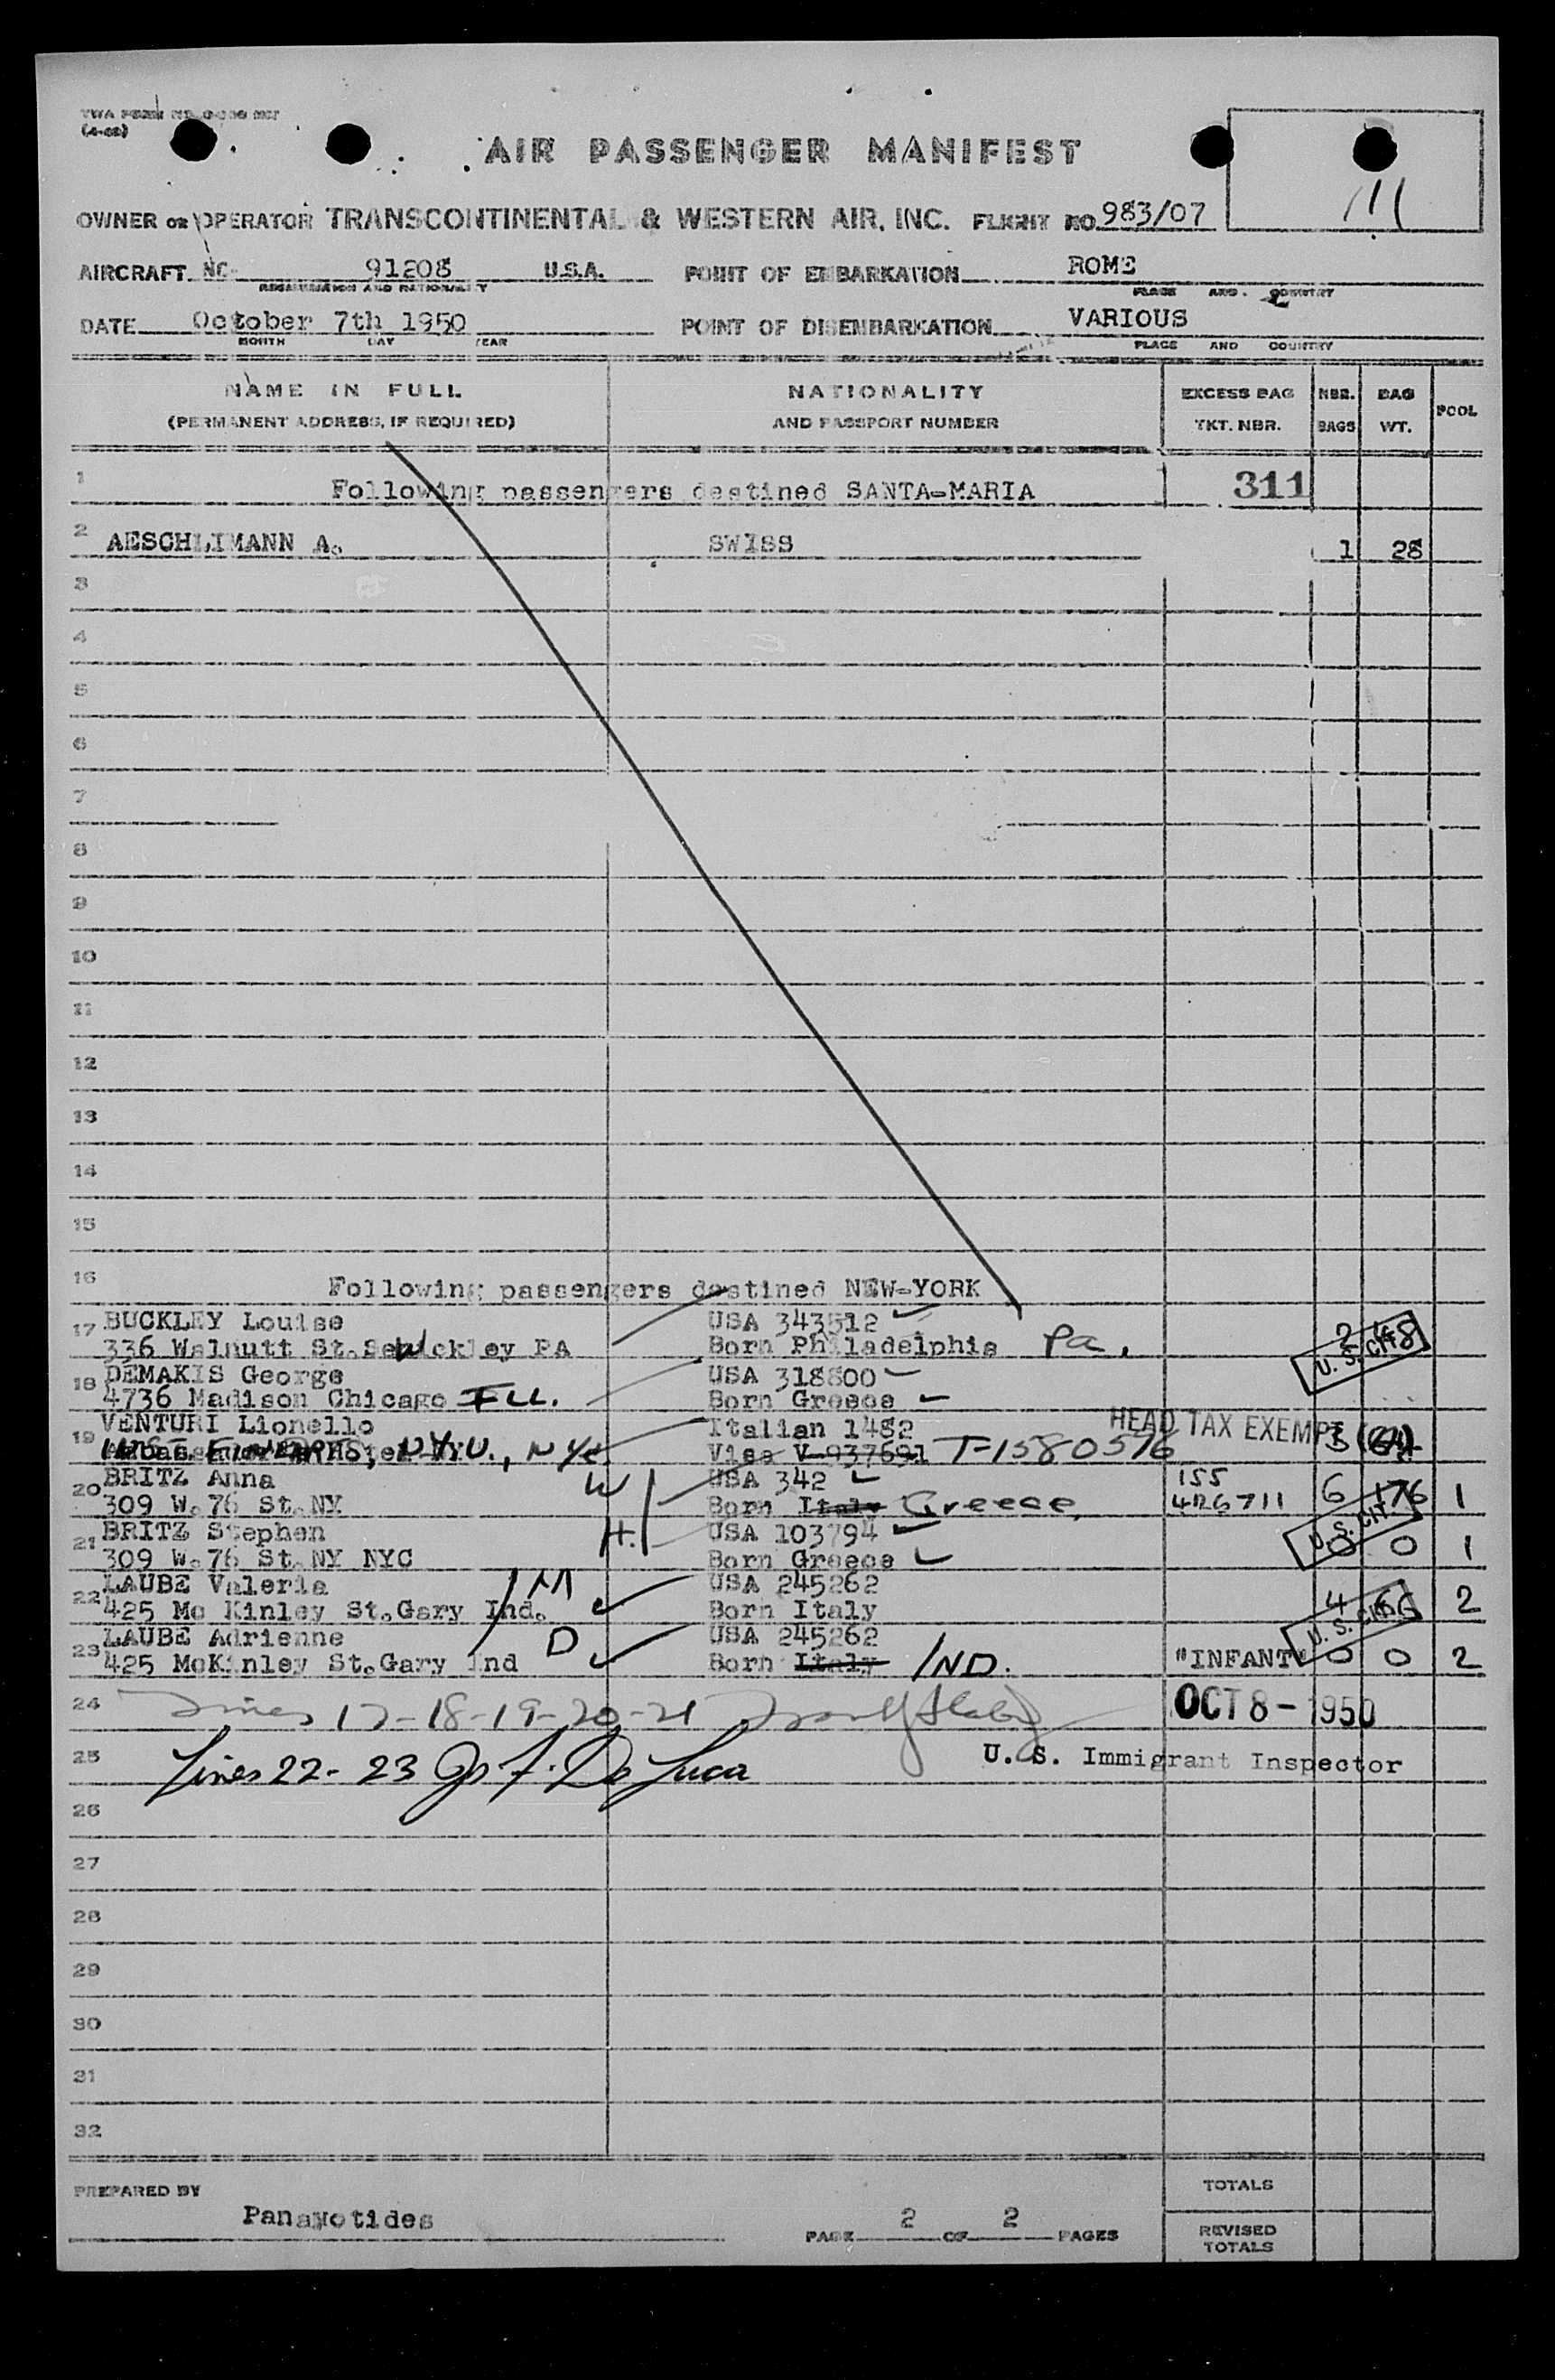 AIR PASSENGER MANIFEST
111
OWNER OR OPERATOR TRANSCONTINENTAL & WESTERN AIR, INC. FLIGHT NO. 983/07
AIRCRAFT NC- 91208 U.S.A. POINT OF EMBARKATION ROME
REGISTRATION AND NATIONALITY PLACE AND COUNTRY
DATE October 7th 1950 POINT OF DISEMBARKATION VARIOUS
MONTH DAY YEAR PLACE AND COUNTRY
NAME IN FULL NATIONALITY EXCESS BAG NBR. BAG POOL
(PERMANENT ADDRESS, IF REQUIRED) AND PASSPORT NUMBER TKT. NBR. BAGS WT.
1 Following passengers destined SANTA-MARIA 311
2 AESCHLIMANN A. SWISS 1 28
3
4
5
6
7
8
9
10
11
12
13
14
15
16 Following passengers destined NEW-YORK
17 BUCKLEY Louise USA 343512
336 Walnutt St. Sewickley PA Born Philadelphia Pa. 2 48
U. S. CIT.
18 DEMAKIS George USA 318800
4736 Madison Chicago ILL. Born Greece
19 VENTURI Lionello Italian 1482 HEAD TAX EXEMPT
N.Y.U., NYC Visa V-937691 T-1580576
20 BRITZ Anna W USA 342 155 6 176 1
309 W. 76 St. NY Born Italy Greece. 426711
U. S. CIT.
21 BRITZ Stephen H. USA 103794
309 W. 76 St. NY NYC Born Greece 0 0 1
22 LAUBE Valeria M USA 245262
425 Mc Kinley St. Gary Ind. Born Italy 4 66 2
U. S. CIT.
23 LAUBE Adrienne D USA 245262
425 McKinley St. Gary Ind Born Italy IND. "INFANT" 0 0 2
24 Lines 17-18-19-20-21 OCT 8 - 1950
25 Lines 22-23 De Luca U. S. Immigrant Inspector
26
27
28
29
30
31
32
PREPARED BY TOTALS
Panayotides PAGE 2 OF 2 PAGES REVISED TOTALS